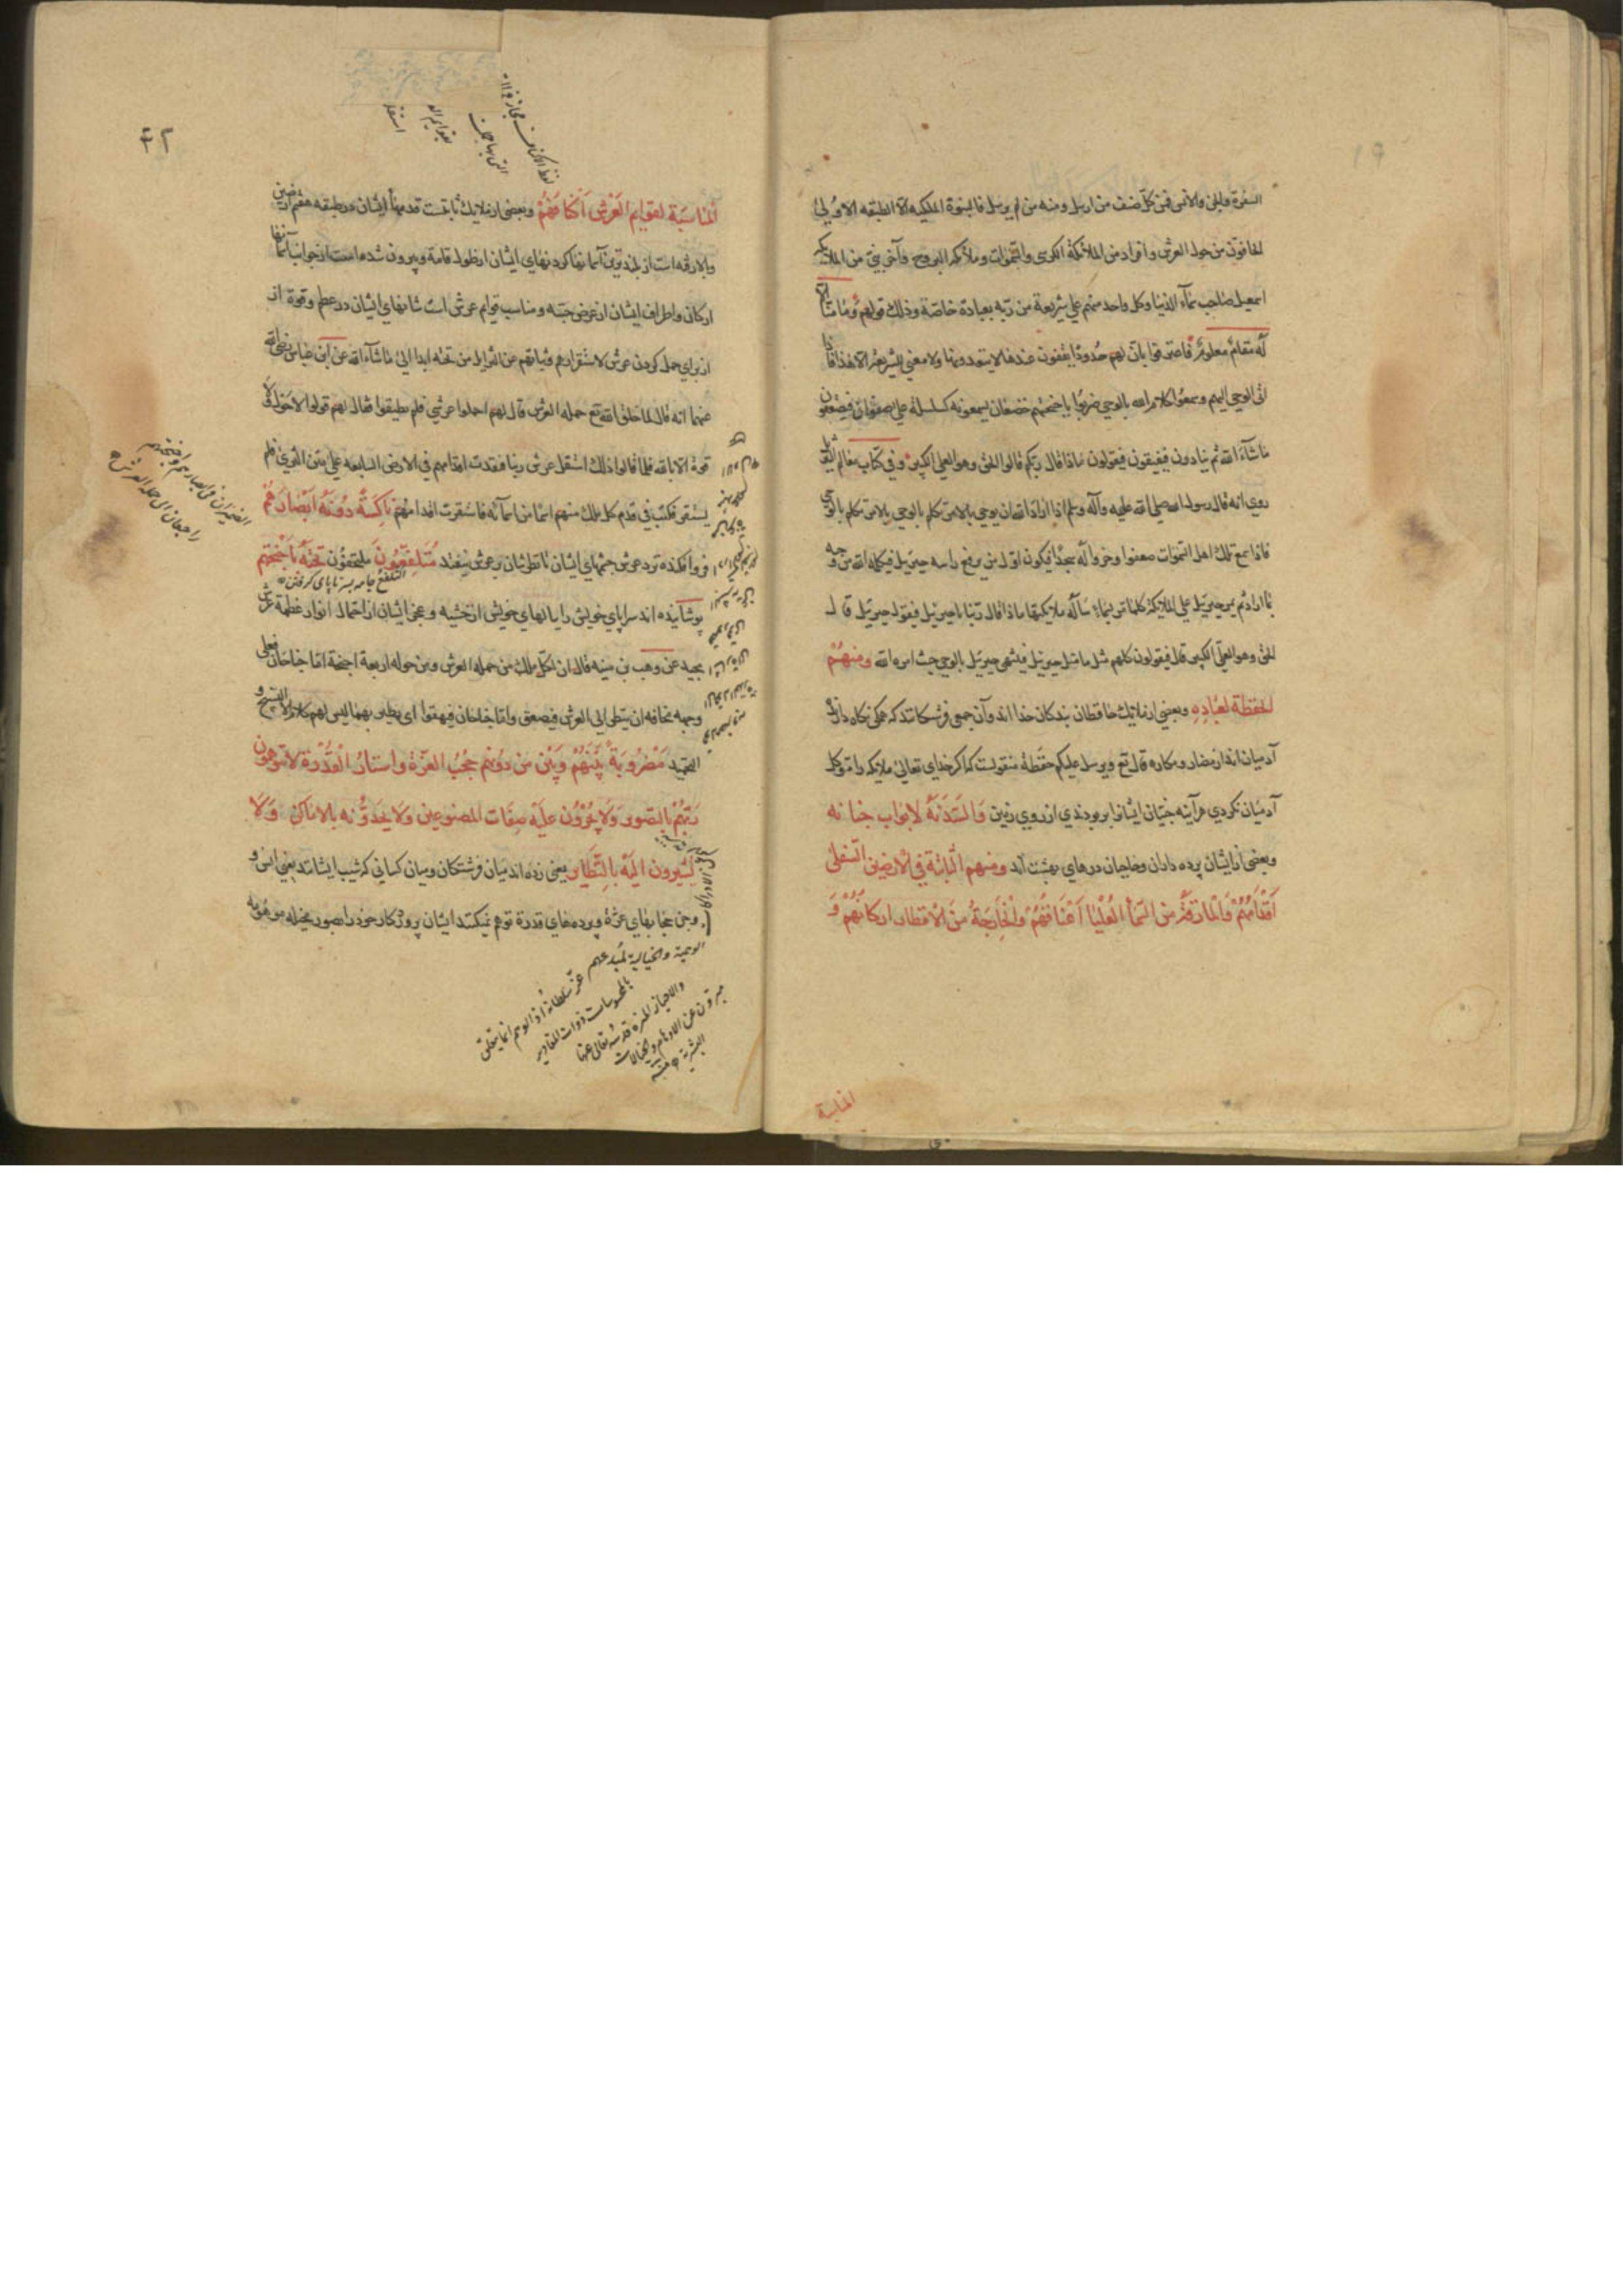 السفرة والجن والانس فمن كل صنف من ارسل ومنه من لم يرسل فالنبوة الملكيه الا الطبقه الاولى
الحافون من حول العرش وافراد من الملائكة الكرسى والسموات وملائكه البروج وآخر نبى من الملائكه
اسمعيل صاحب سماء الدنيا وكل واحد منهم على شريعة من ربه بعبادة خاصة وذلك قولهم وما منا الا
له مقام معلوم فاعترفوا بان لهم حدودا يقفون عندها لا يتعدونها ولا معنى للشريعة الا هذا فاذا
اتى الوحى اليهم وسمعوا كلام الله بالوحى ضربوا باجنحتهم خضعانا يسمعونه كسلسلة على صفوان فيصعقون
ما شآء الله ثم ينادون فيفيقون فيقولون ماذا قال ربكم قالوا الحق وهو العلى الكبير وفى كتاب معالم التنزيل
روى انه قال رسول الله صلى الله عليه وآله وسلم اذا اراد الله ان يوحى بالامر تكلم بالوحى
فاذا سمع تلك اهل السموات صعقوا وخروا لله سجدا فيكون اول من يرفع راسه جبرئيل فيكلمه الله من وحيه
بما اراد ثم يمر جبرئيل على الملائكة كلما مر بسماء سأله ملائكتها ماذا قال ربنا يا جبرئيل فيقول جبرئيل قال
الحق وهو العلى الكبير قال فيقولون كلهم مثل ما مثل جبرئيل فينتهى جبرئيل بالوحى حيث امره الله ومنهم
الحفظة لعباده وبعضى از ملائك حافظان بندكان خدا اند وآن جمعى فرشتكانند كه همكى نكاه دارند
آدميان اند از مضار ومكاره قال تع ويرسل عليكم حفظة منقولست كه اكر خداى تعالى ملائكه را موكل
آدميان نكردى هرآينه جنيان ايشانرا بربودندى از روى زمين والسدنة لابواب جنانه
وبعضى از ايشان پرده داران وحاجبان درهاى بهشت اند ومنهم الثابتة فى الارضين السفلى
اقدامهم والمارقة من السماء العليا اعناقهم والخارجة من الاقطار اركانهم و
المناسبة
٤٢
المناسبة لقوايم العرش اكتافهم وبعضى از ملائك ثابتست قدمهاى ايشان در طبقه هفتم ارضين
وبالا رفته است از بلندترين آسمانها كردنهاى ايشان از طول قامة وبيرون شده است از جوانب آسمانها
اركان واطراف ايشان از عرض جثه ومناسب قوايم عرش است شانهاى ايشان در عظم وقوة از
از براى حمل كردن عرش لاستقرارهم وثباتهم عن التزايل من تحته ابدا الى ما شآء الله عن ابن عباس رضى الله
عنهما انه قال لما خلق الله تع حملة العرش قال لهم احملوا عرشى فلم يطيقوا فقال لهم قولوا لا حول ولا
قوة الا بالله فلما قالوا ذلك استقل عرش ربنا فنفذت اقدامهم فى الارض السابعه على متن الثرى فلم
يستقر فكتب فى قدم كل ملك منهم اسما من اسمآئه فاستقرت اقدامهم ناكسة دونه ابصارهم
فرو افكنده نزد عرش چشمهاى ايشان تا نظر شان بر عرش نيفتد متلفعون ملتحفون تحته باجنحتهم
التلفع جامه بسر تا پاى كرفتن
پوشانيده اند سراپاى خويش را ببالهاى خويش از خشيه وعجز ايشان از احتمال انوار عظمة عرش
مجيد عن وهب بن منبه قال ان لكل ملك من حملة العرش ومن حوله اربعة اجنحة اما جناحان فعلى
وجهه مخافة ان ينظر الى العرش فيصعق واما جناحان فيهفوا اى يطير بهما ليس لهم كلام الا التسبيح و
التحميد مضروبة بينهم وبين من دونهم حجب العزة واستار القدرة لا يتوهمون
ربهم بالتصوير ولا يجرون عليه صفات المصنوعين ولا يحدونه بالاماكن ولا
يشيرون اليه بالنظاير يعنى زده اند ميان فرشتكان وميان كسانى كه شيب ايشانند يعنى انس و
وجن حجابهاى عزة وپرده هاى قدرة توهم نميكنند ايشان پروردكار خود را بصور مخيله موهومه
الضميران فى ابصارهم واجنحتهم
راجعان الى حملة العرش
الوهمية والخيالية لمبدعهم
عز سلطانه اذ الوهم انما يتعلق
بالمحسوسات ذوات المقادير
والاحياز المنزه قدسه تعالى عنها
مبرؤن عن الاوهام والخيالات
البشرية منه